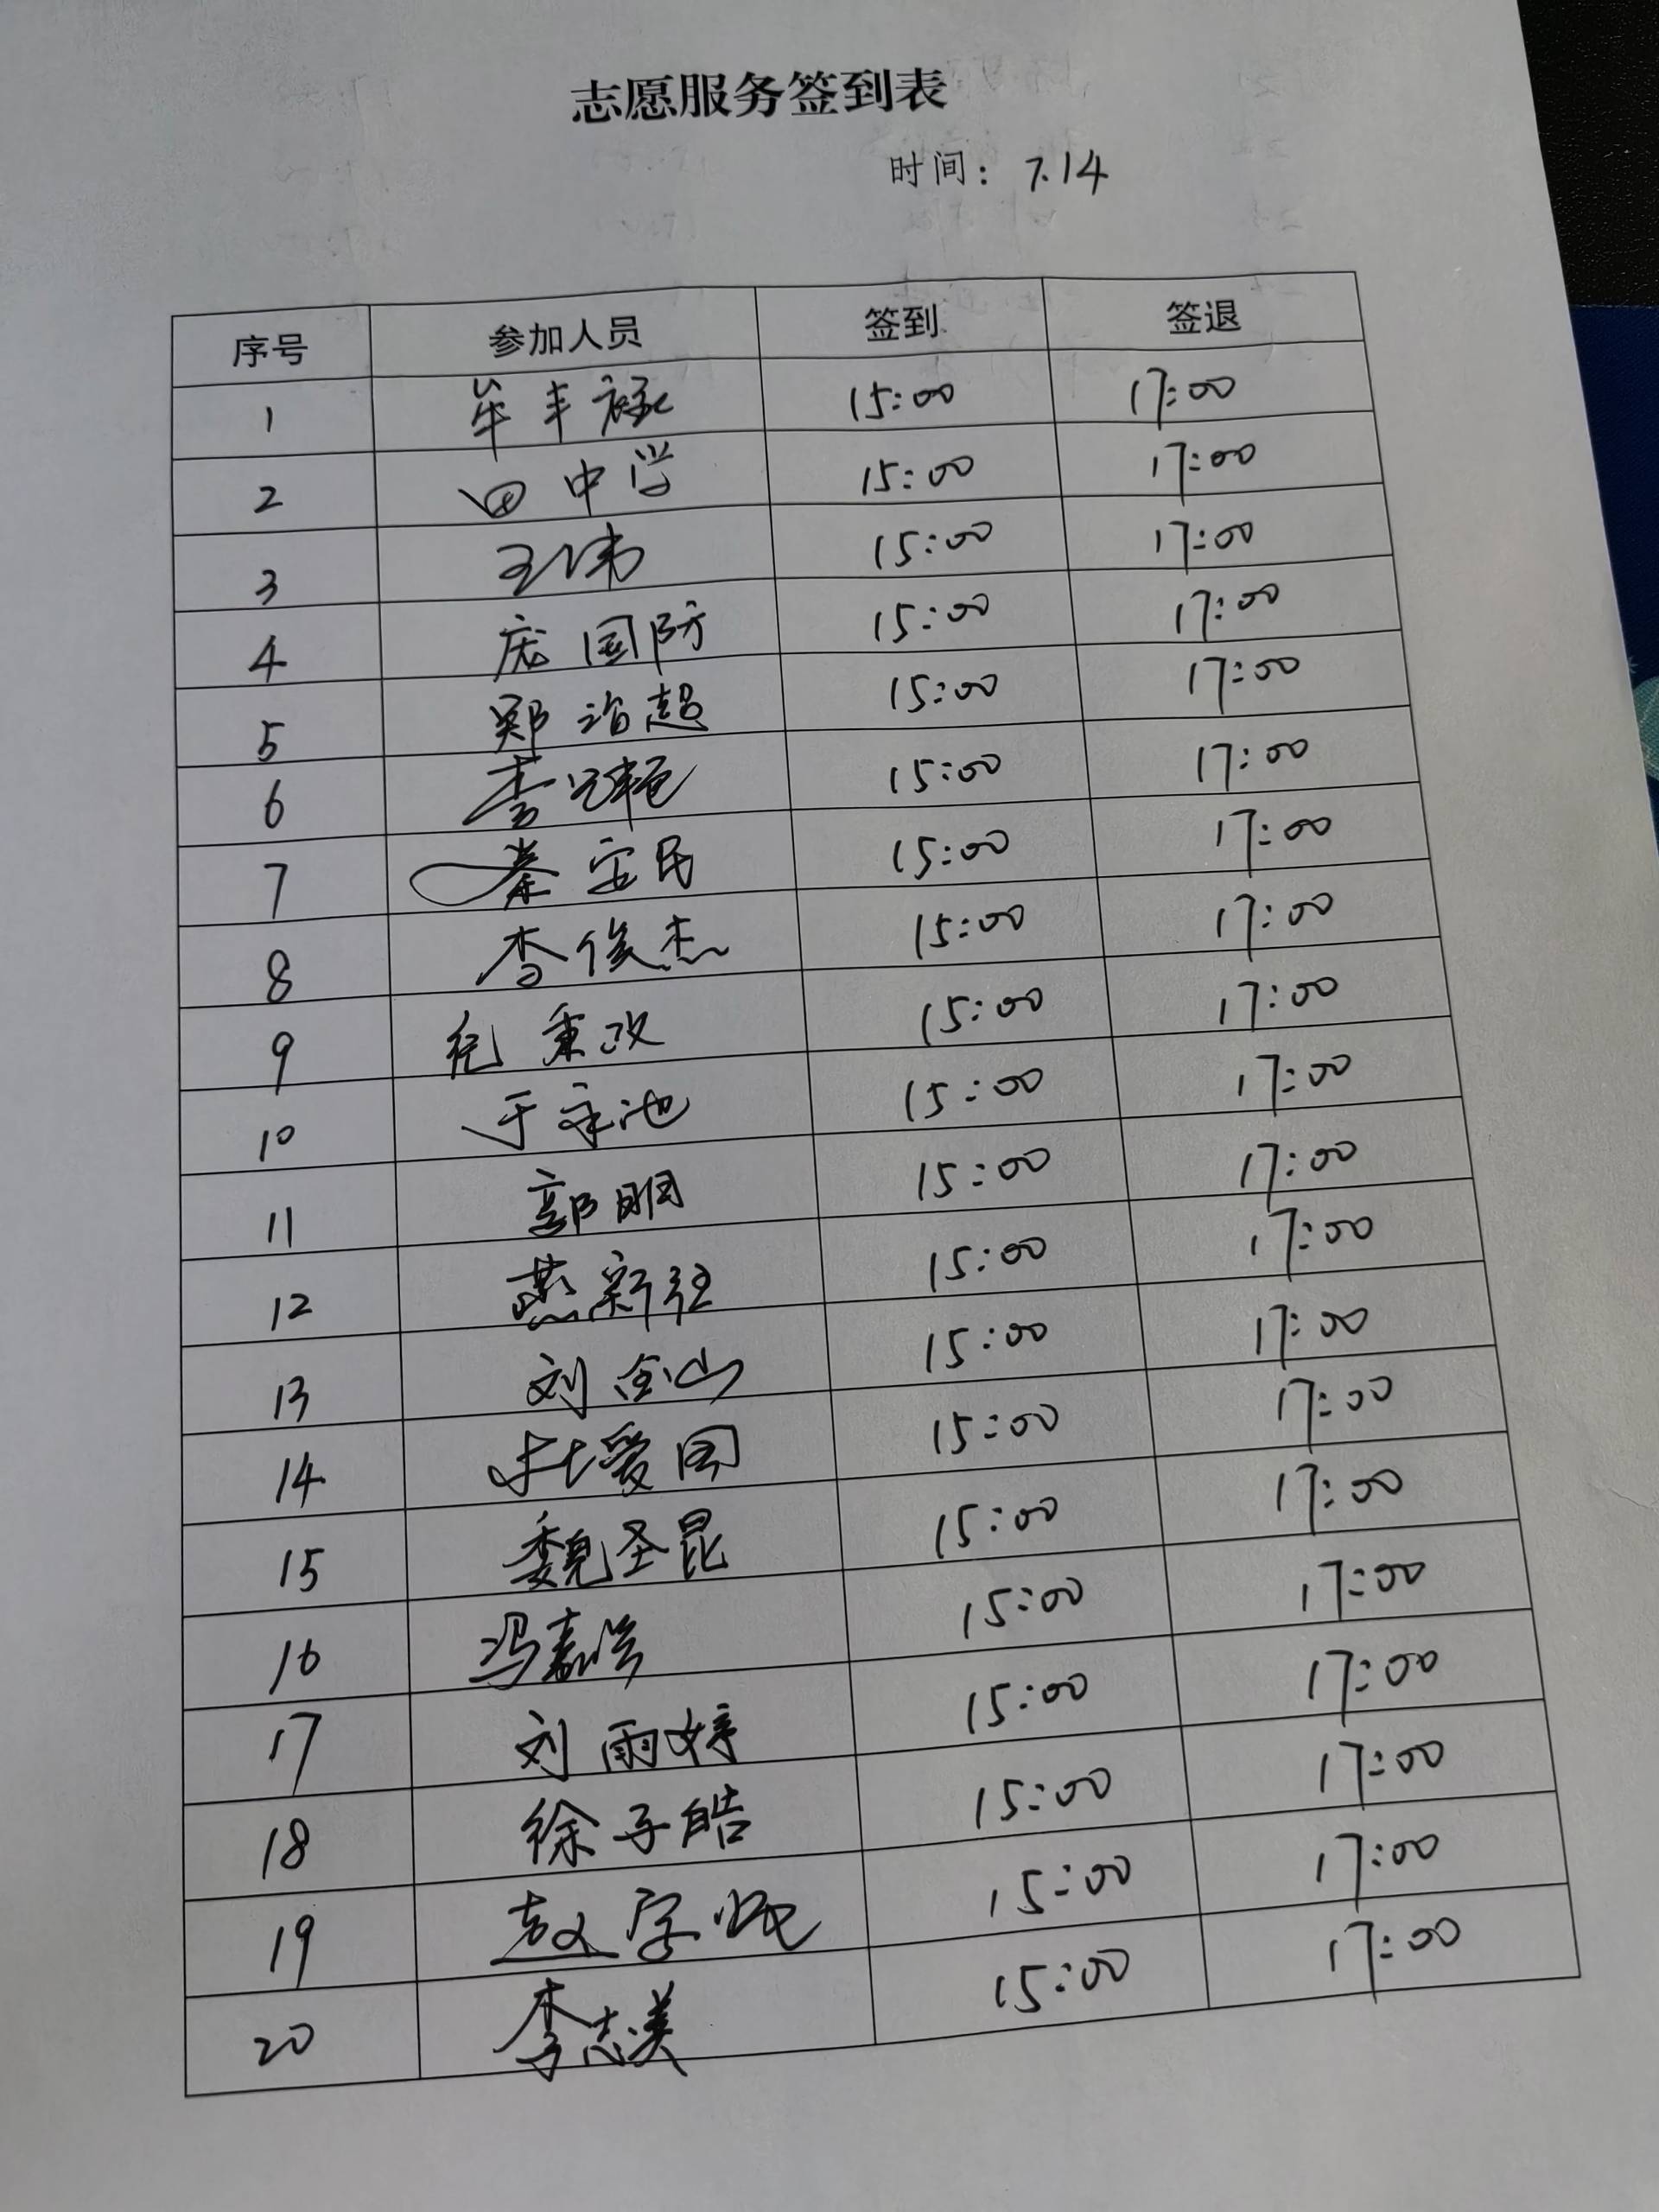 志愿服务签到表
时间: 7.14
序号 参加人员 签到 签退
1 牟丰禄 15:00 17:00
2 田中学 15:00 17:00
3 王伟 15:00 17:00
4 庞国防 15:00 17:00
5 郑治超 15:00 17:00
6 李 艳 15:00 17:00
7 秦宝民 15:00 17:00
8 李俊杰 15:00 17:00
9 秉政 15:00 17:00
10 于永池 15:00 17:00
11 郭明 15:00 17:00
12 燕新 15:00 17:00
13 刘金山 15:00 17:00
14 杜爱国 15:00 17:00
15 魏圣昆 15:00 17:00
16 冯嘉 15:00 17:00
17 刘雨婷 15:00 17:00
18 徐子皓 15:00 17:00
19 敖 15:00 17:00
20 李志美 15:00 17:00